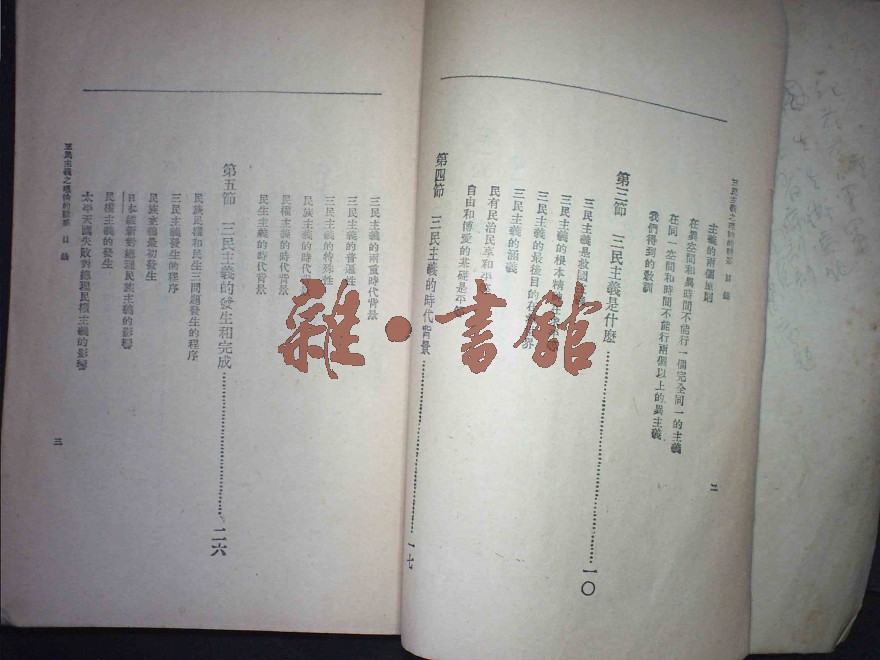 三民主義之理論的體系 目錄
二
主義的兩個原則
在異空間和異時間不能行一個完全同一的主義
在同一空間和時間不能行兩個以上的異主義
我們得到的教訓
第三節 三民主義是什麼……一〇
三民主義是救國主義
三民主義的根本精神在
三民主義的最後目的在 界
三民主義的涵義
民有民治民享和
自由和博愛的基礎是平
第四節 三民主義的時代背景……一七
三民主義的兩重時代背景
三民主義的普遍性
三民主義的特殊性
民族主義的時代背
民權主義的時代背景
民生主義的時代背景
第五節 三民主義的發生和完成……二六
民族民權和民生三問題發生的程序
三民主義發生的程序
民族主義最初發生
日本維新對總理民族主義的影響
民權主義的發生
太平天國失敗對總理民權主義的影響
三民主義之理論的體系 目錄
三
雜·書館